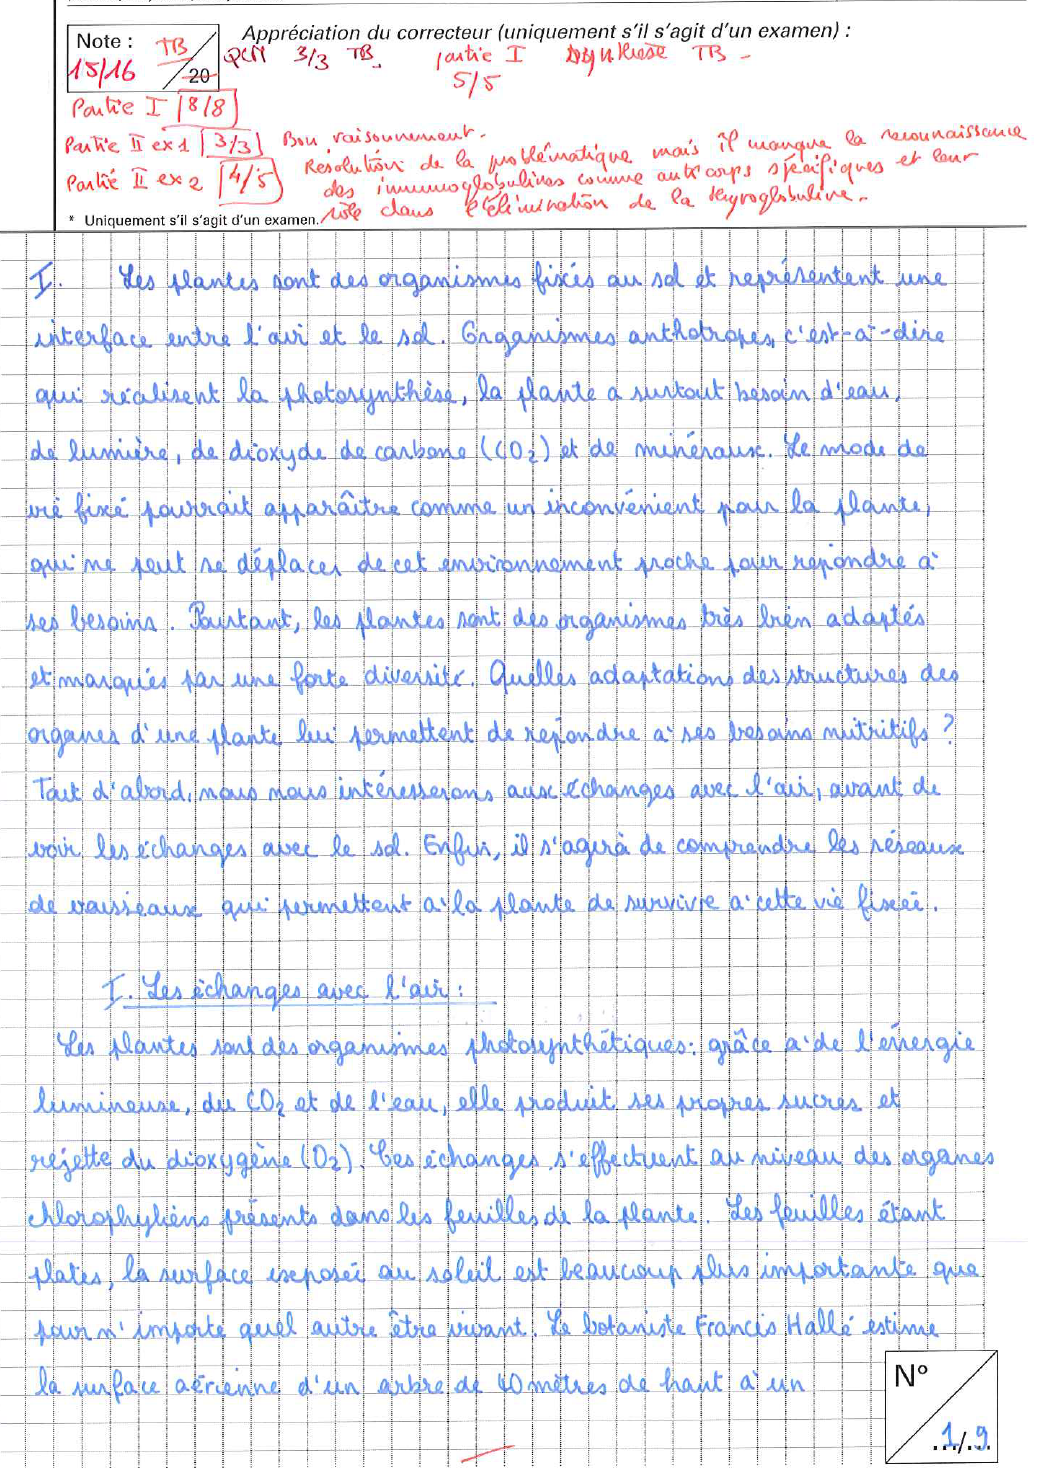 Appréciation du correcteur (uniquement s'il s'agit d'un examen) :
Note : TB
15/16 /20
QCM 3/3 TB. partie I synthèse TB -
5/5
Partie I 8/8
Partie II ex 1 3/3 Bon raisonnement.
Partie II ex 2 4/5 Resolution de la problématique mais il manque la reconnaissance
des immunoglobulines comme anticorps spécifiques et leur
rôle dans l'élimination de la thyroglobuline.
* Uniquement s'il s'agit d'un examen.
I. Les plantes sont des organismes fixés au sol et représentent une
interface entre l'air et le sol. Organismes anthotropes, c'est-à-dire
qui réalisent la photosynthèse, la plante a surtout besoin d'eau,
de lumière, de dioxyde de carbone (CO2) et de minéraux. Le mode de
vie fixé pourrait apparaître comme un inconvénient pour la plante,
qui ne peut se déplacer de cet environnement proche pour répondre à
ses besoins. Pourtant, les plantes sont des organismes très bien adaptés
et marqués par une forte diversité. Quelles adaptations des structures des
organes d'une plante lui permettent de répondre à ses besoins nutritifs ?
Tout d'abord, nous nous intéresserons aux échanges avec l'air, avant de
voir les échanges avec le sol. Enfin, il s'agira de comprendre les réseaux
de vaisseaux qui permettent à la plante de survivre à cette vie fixée.
I. Les échanges avec l'air :
Les plantes sont des organismes photosynthétiques : grâce à de l'énergie
lumineuse, du CO2 et de l'eau, elle produit ses propres sucres et
rejette du dioxygène (O2). Ces échanges s'effectuent au niveau des organes
chlorophyliens présents dans les feuilles de la plante. Les feuilles étant
plates, la surface exposée au soleil est beaucoup plus importante que
pour n'importe quel autre être vivant. Le botaniste Francis Hallé estime
la surface aérienne d'un arbre de 40 mètres de haut à un
N°
1/9